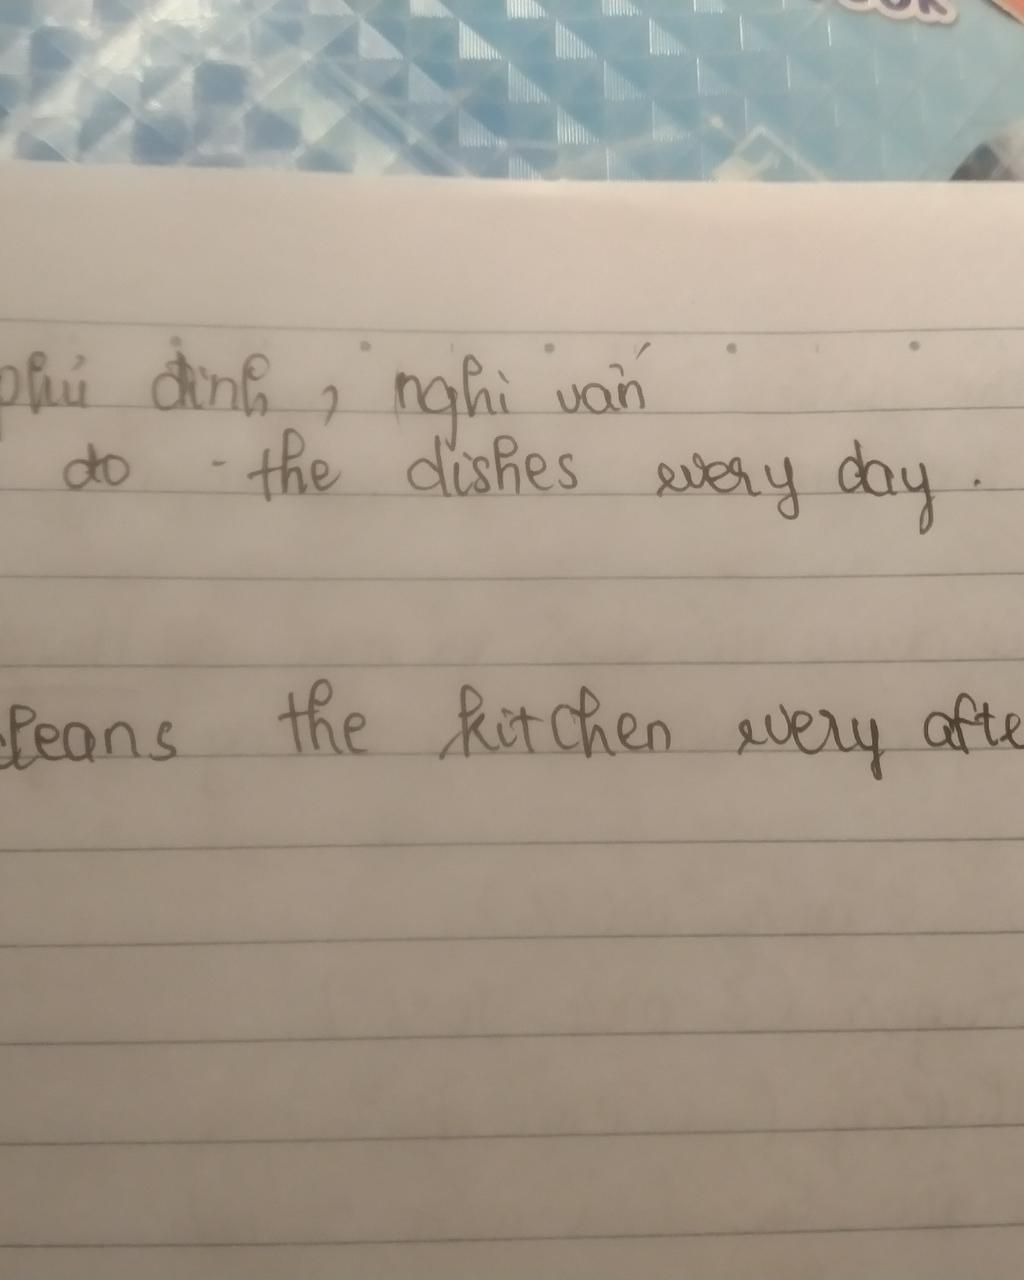 phủ định, nghi vấn
do the dishes every day.
cleans the kitchen every afte